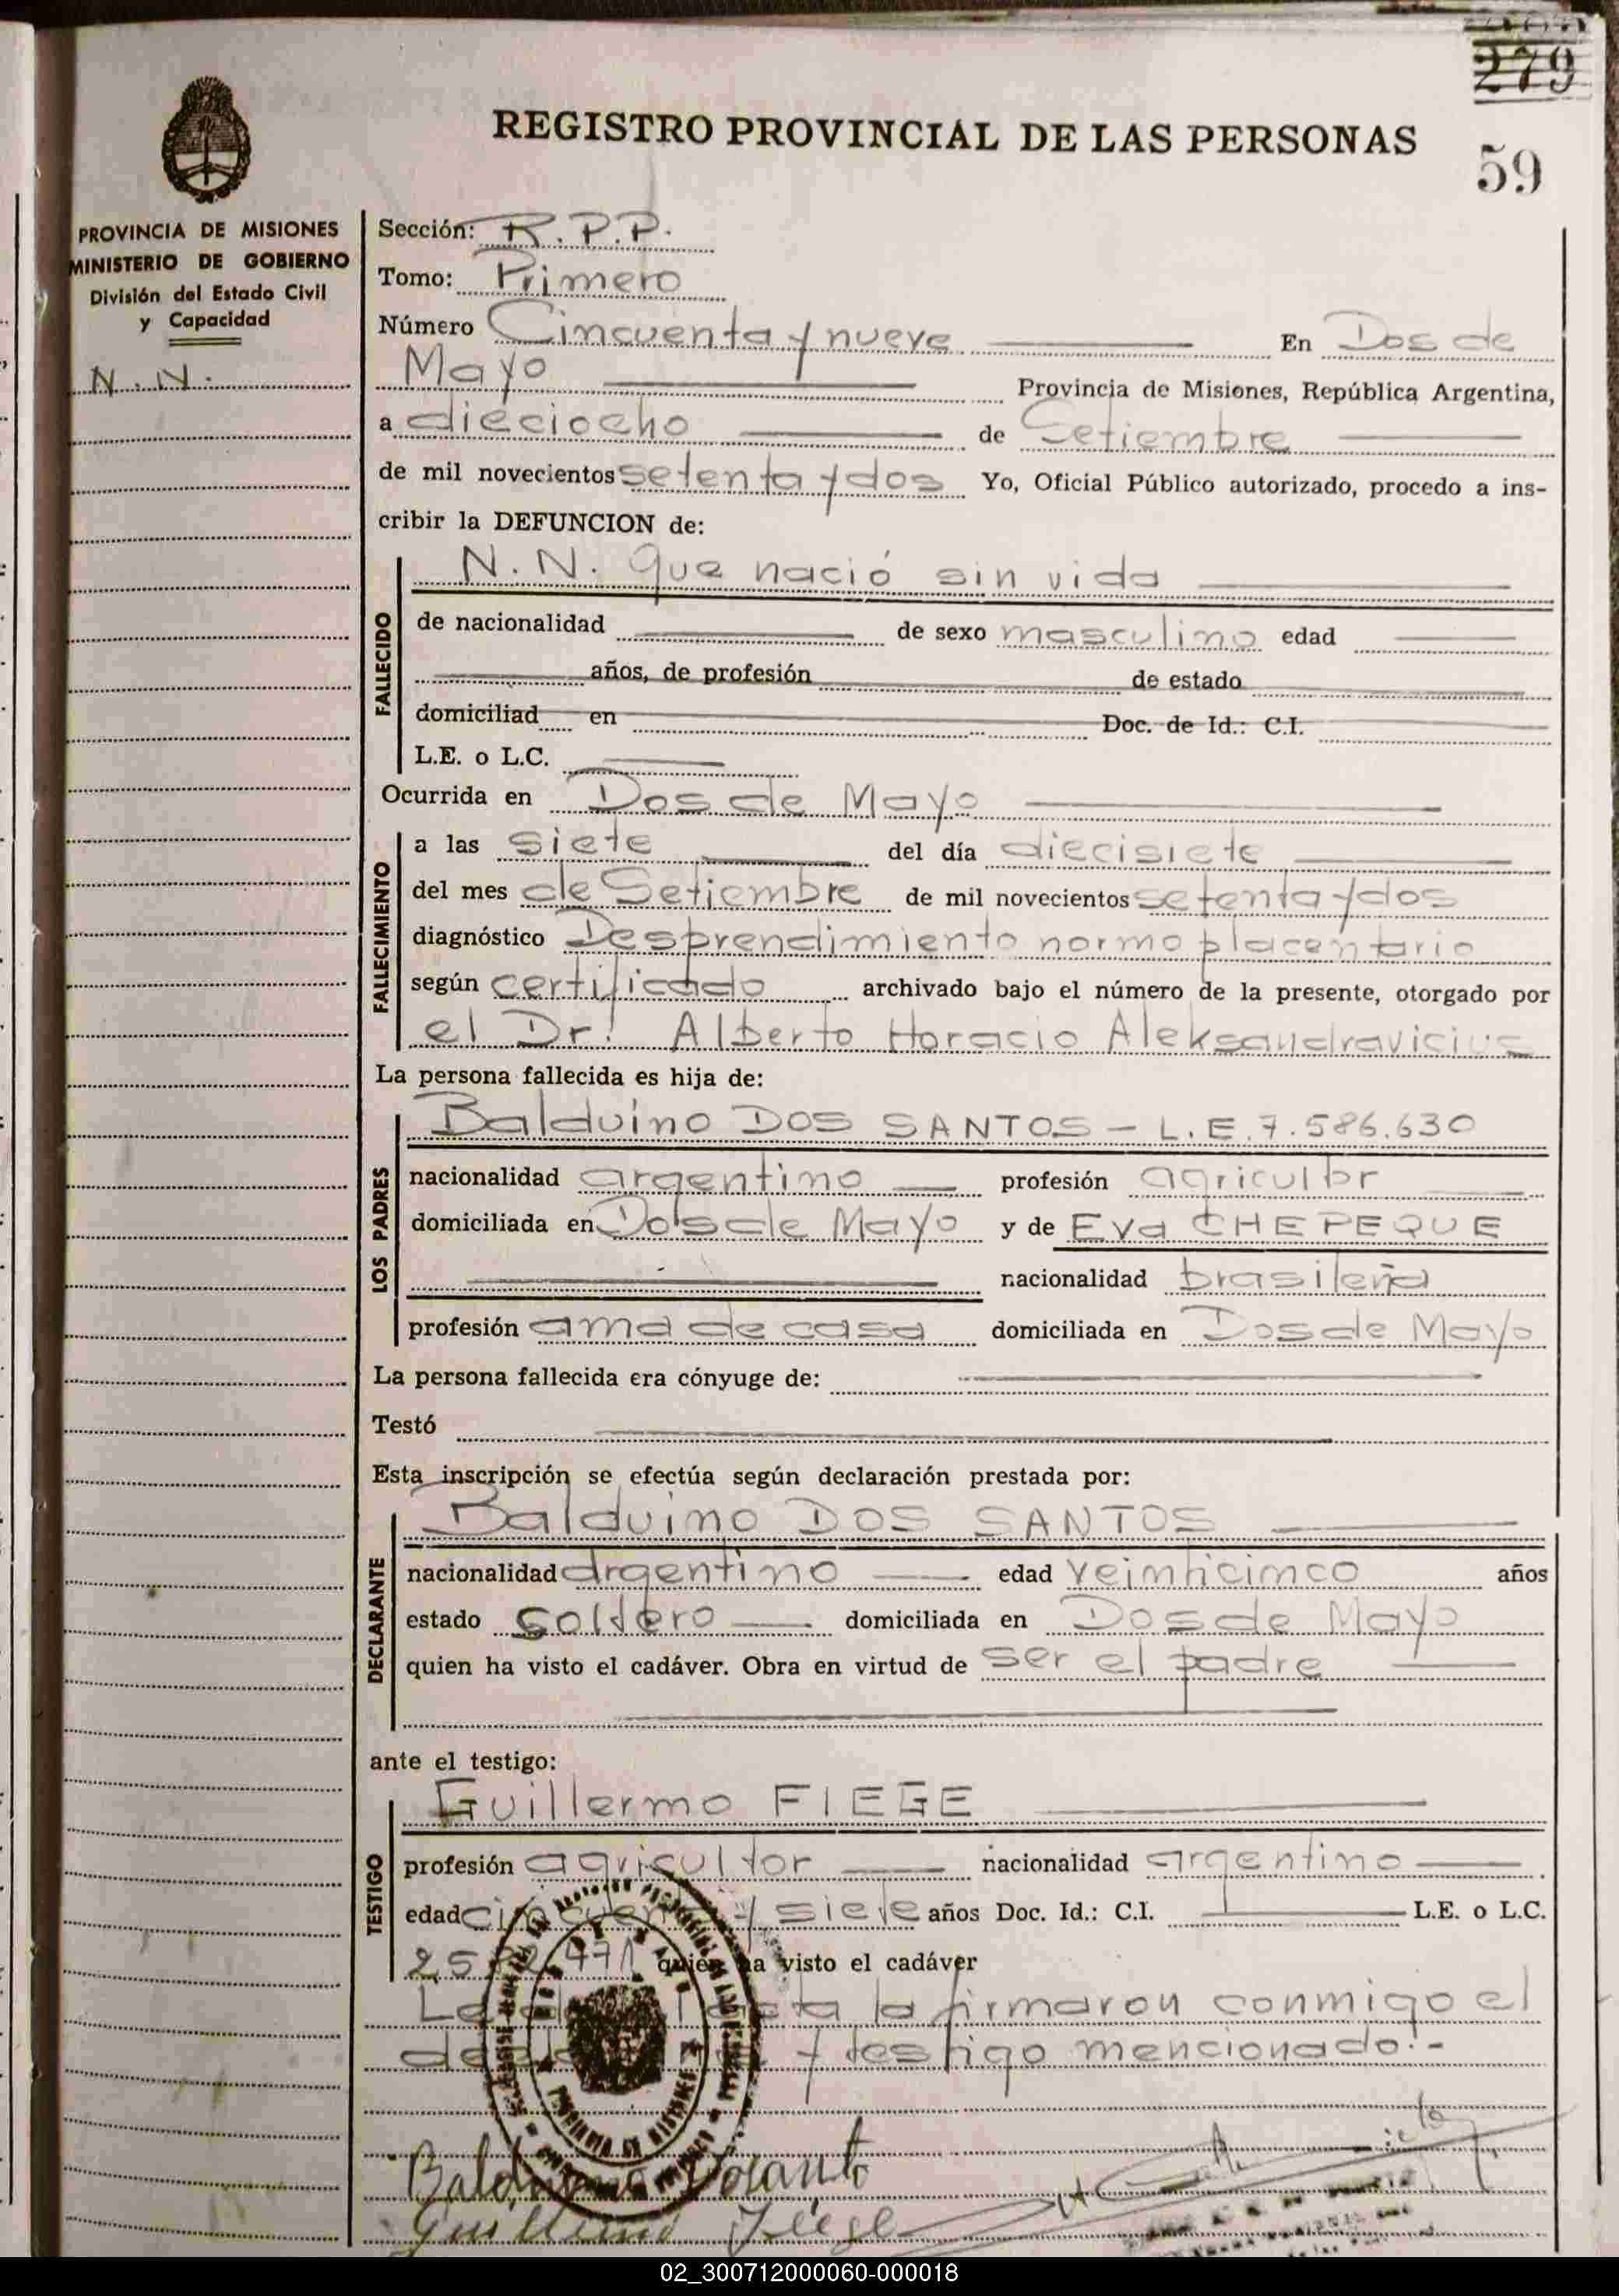 279
REGISTRO PROVINCIAL DE LAS PERSONAS
59
PROVINCIA DE MISIONES
MINISTERIO DE GOBIERNO
División del Estado Civil
y Capacidad
N.N.
Sección: R.P.P.
Tomo: Primero
Número Cincuenta y nueve En Dos de
Mayo Provincia de Misiones, República Argentina,
a dieciocho de Setiembre
de mil novecientos setenta y dos Yo, Oficial Público autorizado, procedo a ins-
cribir la DEFUNCION de:
N.N. que nació sin vida
FALLECIDO
de nacionalidad de sexo masculino edad
años, de profesión de estado
domiciliad en Doc. de Id.: C.I.
L.E. o L.C.
Ocurrida en Dos de Mayo
FALLECIMIENTO
a las siete del día diecisiete
del mes de Setiembre de mil novecientos setenta y dos
diagnóstico Desprendimiento normo placentario
según certificado archivado bajo el número de la presente, otorgado por
el Dr. Alberto Horacio Aleksandravicius
La persona fallecida es hija de:
LOS PADRES
Balduino DOS SANTOS - L.E. 7.586.630
nacionalidad argentino profesión agricultor
domiciliada en Dos de Mayo y de Eva CHEPEQUE
nacionalidad brasileña
profesión ama de casa domiciliada en Dos de Mayo
La persona fallecida era cónyuge de:
Testó
Esta inscripción se efectúa según declaración prestada por:
DECLARANTE
Balduino DOS SANTOS
nacionalidad argentino edad veinticinco años
estado soltero domiciliada en Dos de Mayo
quien ha visto el cadáver. Obra en virtud de ser el padre
ante el testigo:
TESTIGO
Guillermo FIEGE
profesión agricultor nacionalidad argentino
edad cincuenta y siete años Doc. Id.: C.I. L.E. o L.C.
quien ha visto el cadáver
la firmaron conmigo el
y testigo mencionado.-
PROVINCIA DE MISIONES
Guillermo Fiege
02_300712000060-000018